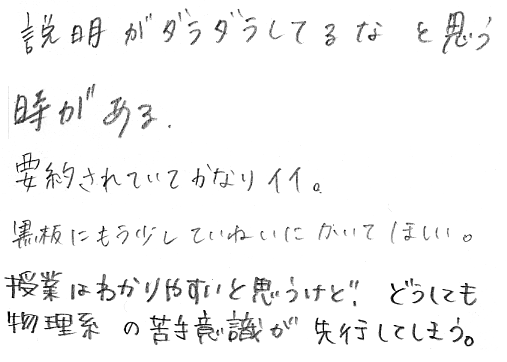 説明がダラダラしてるなと思う
時がある.
要約されていてかなりイイ。
黒板にもう少していねいにかいてほしい。
授業はわかりやすいと思うけど、どうしても
物理系の苦手意識が先行してしまう。